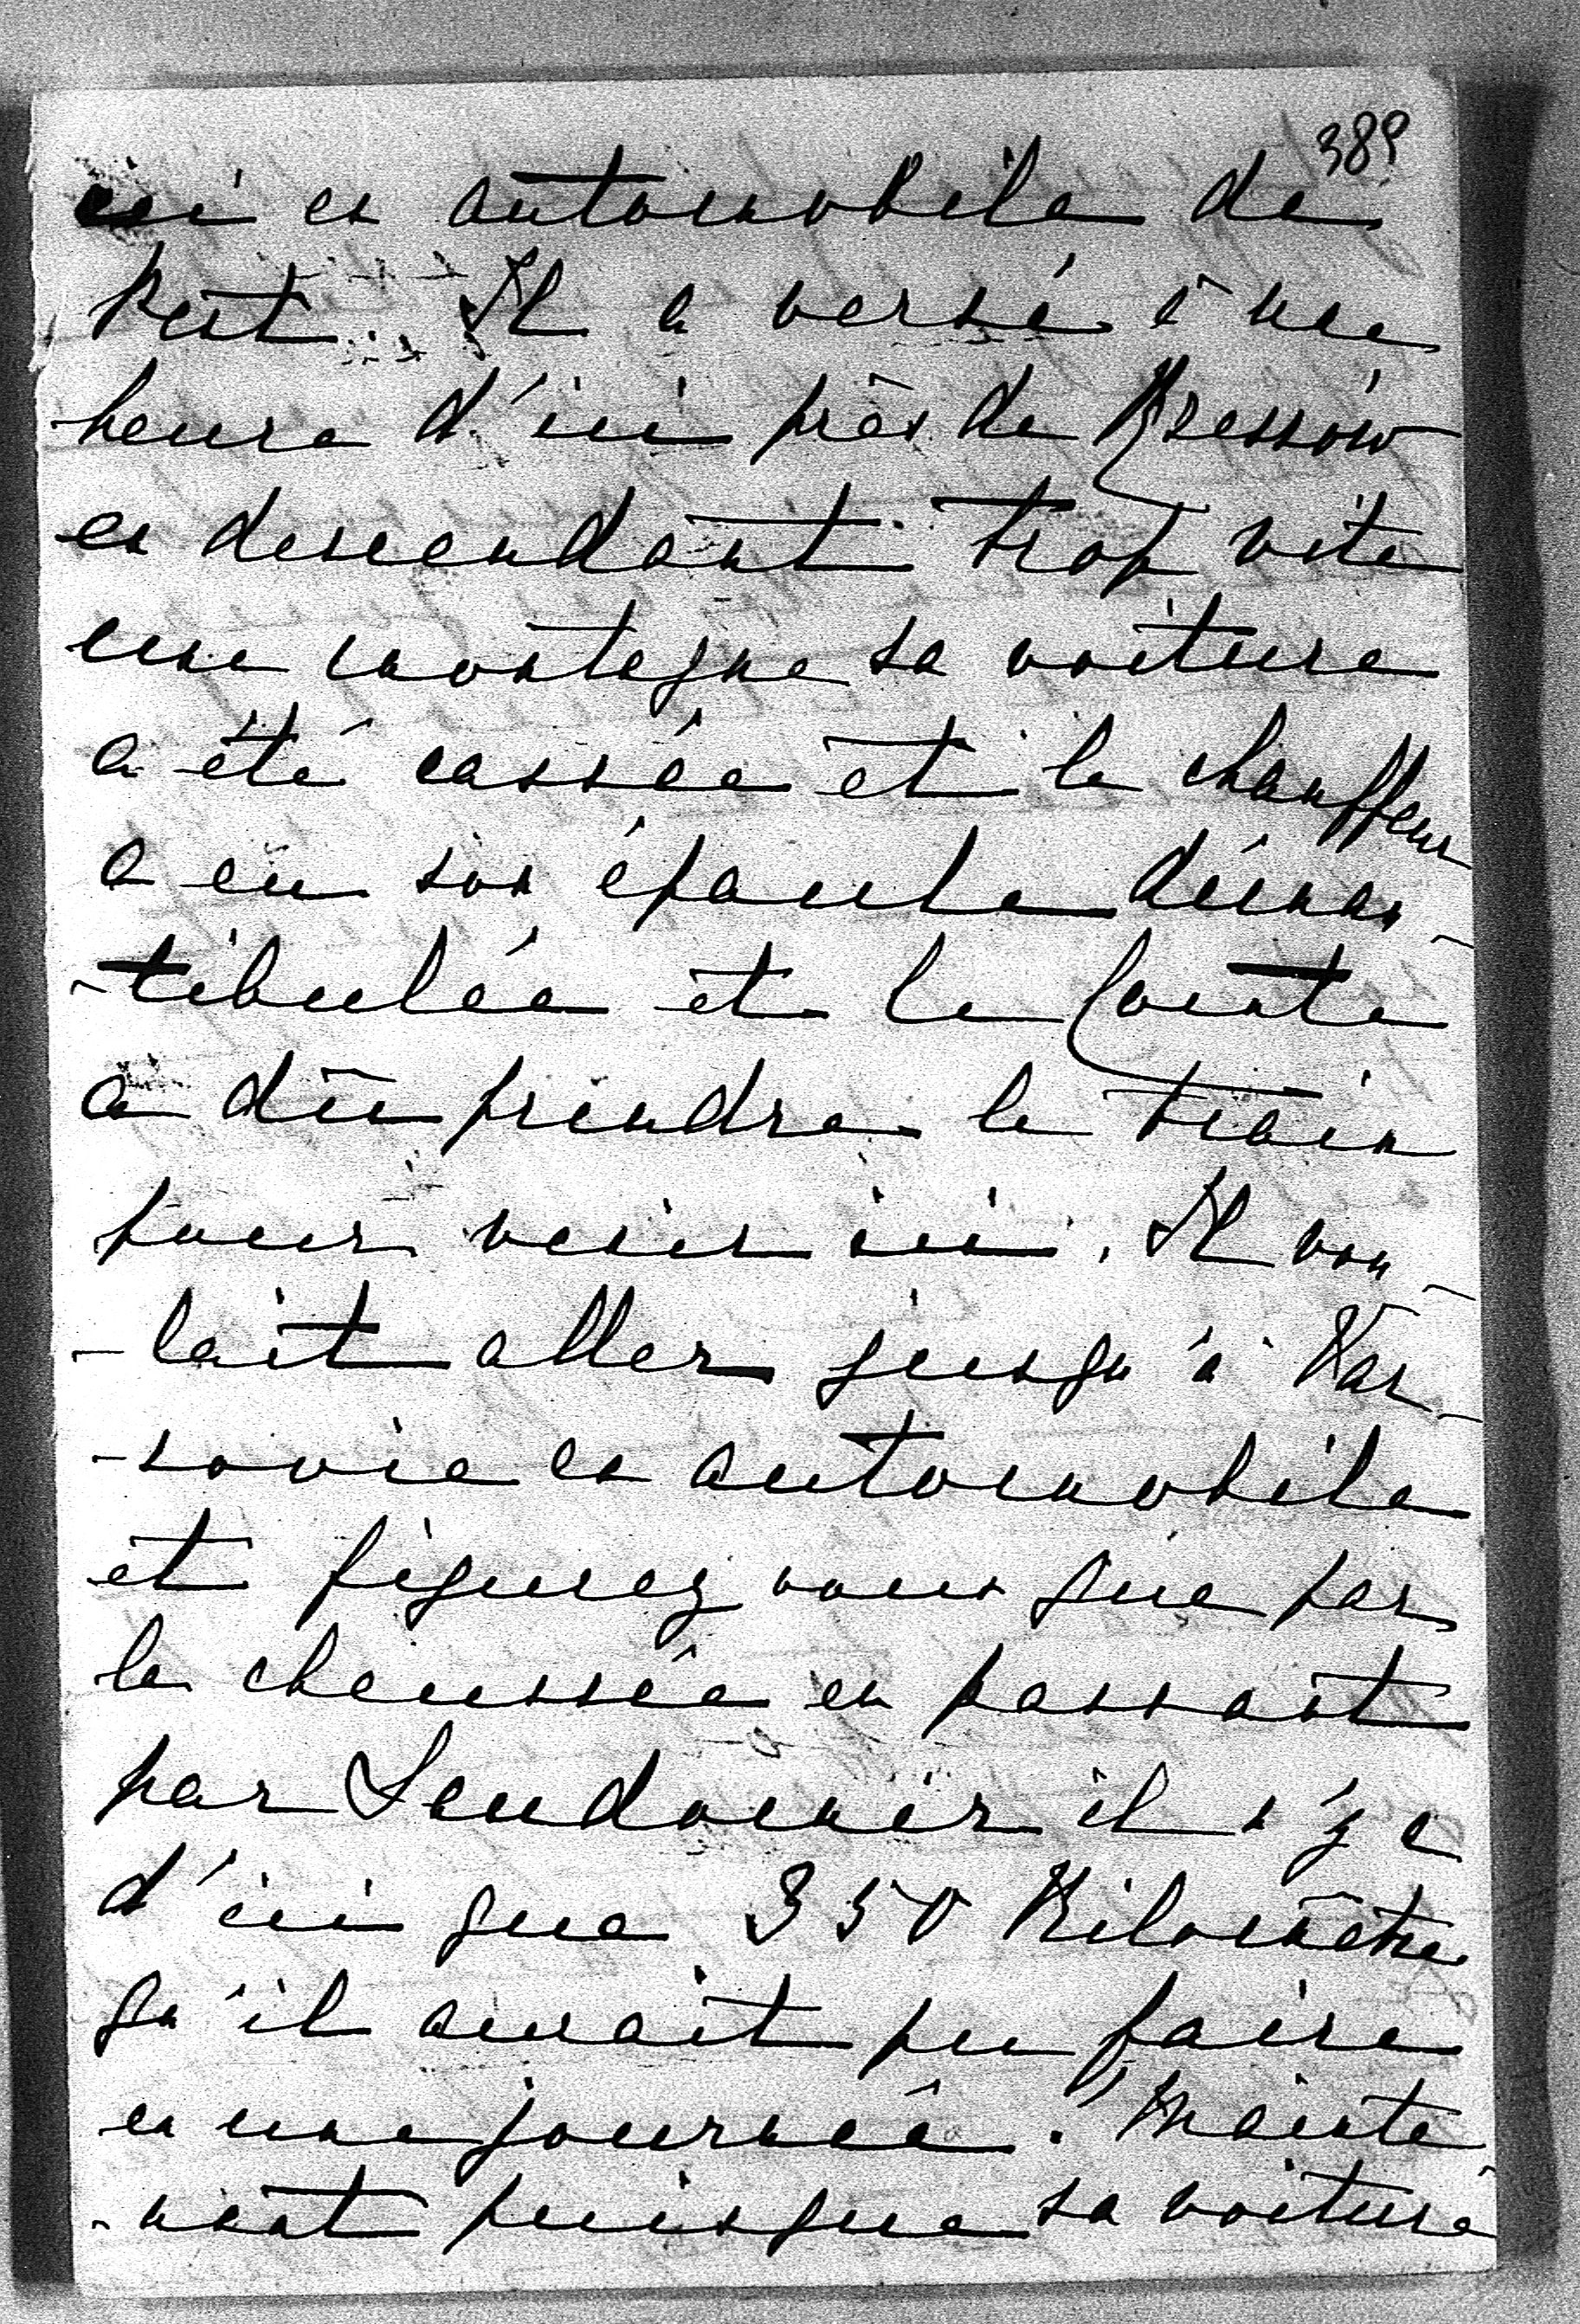 389
ici en automobile de
Pest. Il a versé à une
heure d'ici près de Rzessów
en descendant trop vite
une montagne sa voiture
a été cassée et le chauffeur
a eu son épaule déman-
-tibulée et le Comte
a dû prendre le train
pour venir ici. Il vou-
-lait aller jusqu'à Var-
-sovie en automobile
et figurez vous que par
la chaussée en passant
par Sandomir il n'y a
d'ici que 350 Kilomètres
qu'il aurait pu faire
en une journée. Mainte
-nant puisque sa voiture